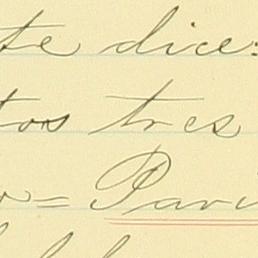 te dice:
tos tres
o = Pari